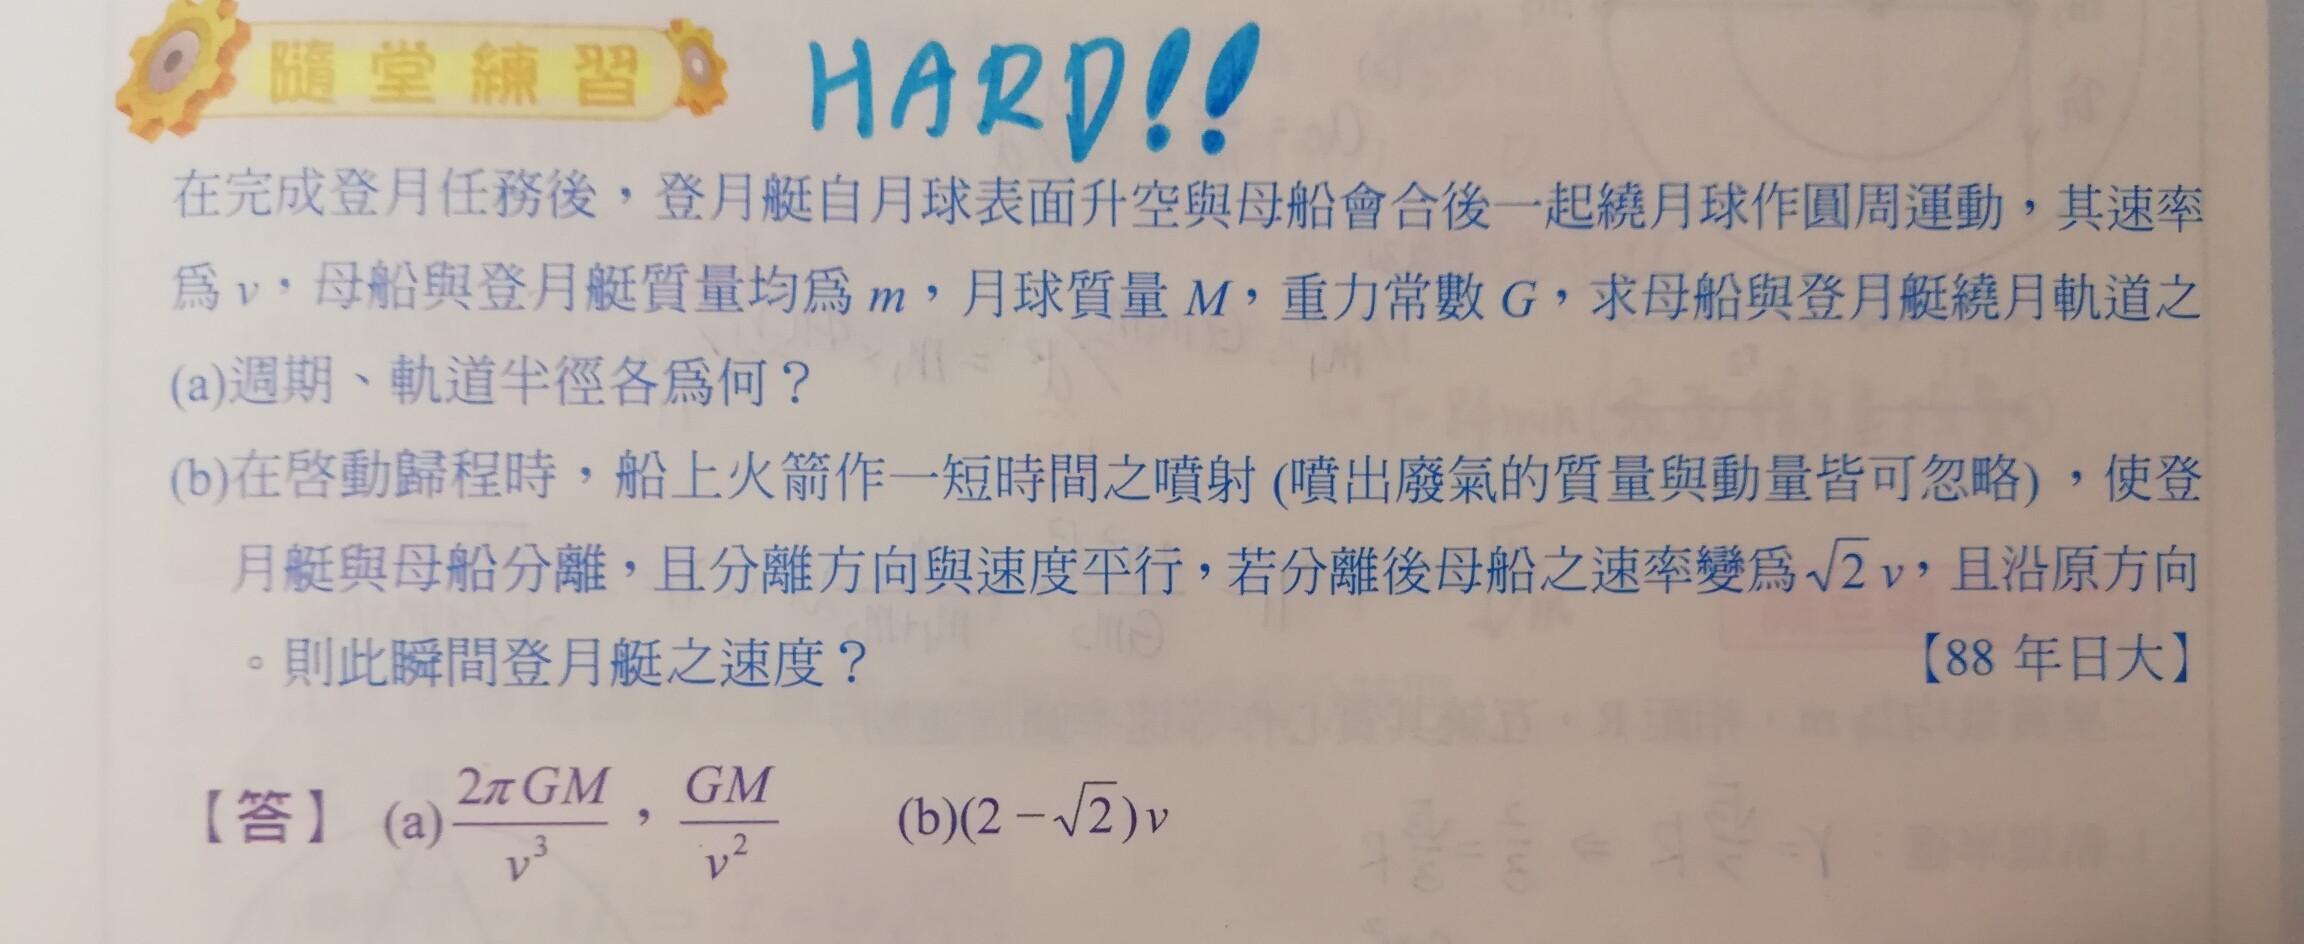 隨堂練習 HARD!!
在完成登月任務後，登月艇自月球表面升空與母船會合後一起繞月球作圓周運動，其速率
爲 v，母船與登月艇質量均爲 m，月球質量 M，重力常數 G，求母船與登月艇繞月軌道之
(a)週期、軌道半徑各爲何？
(b)在啓動歸程時，船上火箭作一短時間之噴射 (噴出廢氣的質量與動量皆可忽略)，使登
月艇與母船分離，且分離方向與速度平行，若分離後母船之速率變爲√2 v，且沿原方向
。則此瞬間登月艇之速度？ 【88 年日大】
【答】 (a) 2πGM/v³ ， GM/v² (b)(2－√2)v